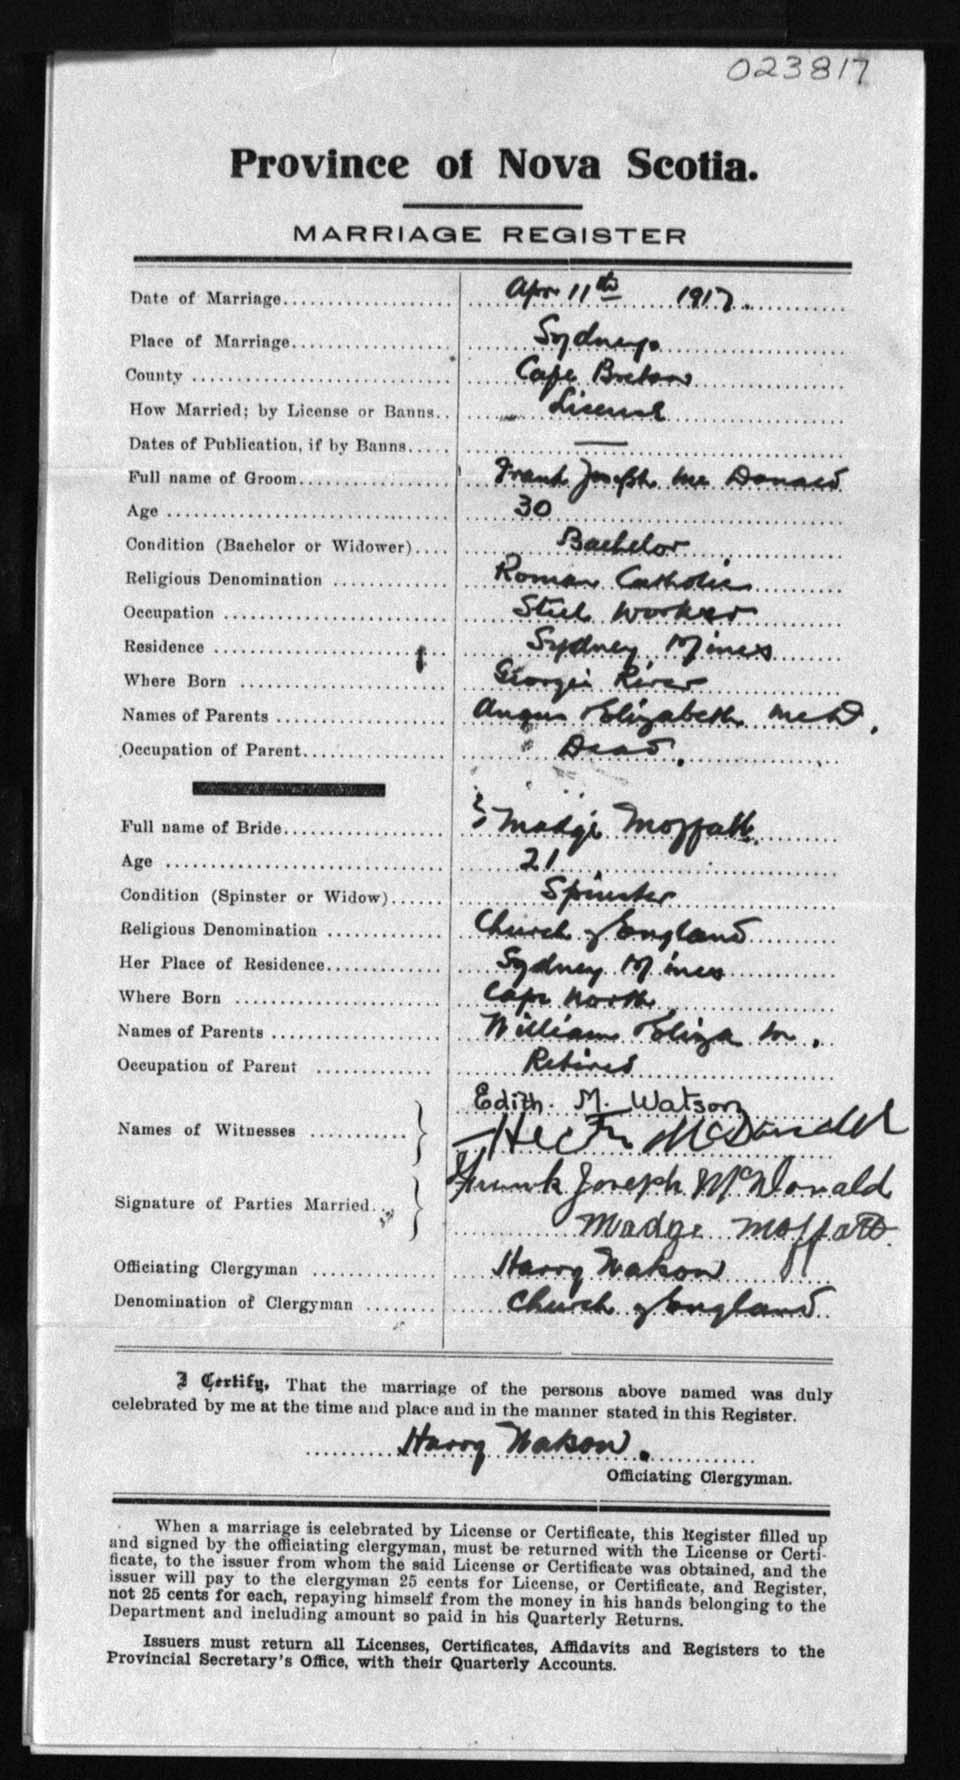 023817
Province of Nova Scotia.
MARRIAGE REGISTER
Date of Marriage Apr 11th 1917.
Place of Marriage Sydney.
County Cape Breton
How Married; by License or Banns License
Dates of Publication, if by Banns —
Full name of Groom Frank Joseph Mc Donald
Age 30
Condition (Bachelor or Widower) Bachelor
Religious Denomination Roman Catholic
Occupation Steel Worker
Residence Sydney Mines
Where Born Georges River
Names of Parents Angus & Elizabeth McD.
Occupation of Parent Dead.
Full name of Bride Madge Moffatt
Age 21
Condition (Spinster or Widow) Spinster
Religious Denomination Church of England
Her Place of Residence Sydney Mines
Where Born Cape North
Names of Parents William & Eliza M.
Occupation of Parent Retired
Edith. M. Watson
Names of Witnesses Hector McDonald
Frank Joseph McDonald
Signature of Parties Married
Madge Moffatt
Officiating Clergyman Harry Watson
Denomination of Clergyman Church of England
I Certify, That the marriage of the persons above named was duly
celebrated by me at the time and place and in the manner stated in this Register.
Harry Watson.
Officiating Clergyman.
When a marriage is celebrated by License or Certificate, this Register filled up
and signed by the officiating clergyman, must be returned with the License or Certi-
ficate, to the issuer from whom the said License or Certificate was obtained, and the
issuer will pay to the clergyman 25 cents for License, or Certificate, and Register,
not 25 cents for each, repaying himself from the money in his hands belonging to the
Department and including amount so paid in his Quarterly Returns.
Issuers must return all Licenses, Certificates, Affidavits and Registers to the
Provincial Secretary's Office, with their Quarterly Accounts.